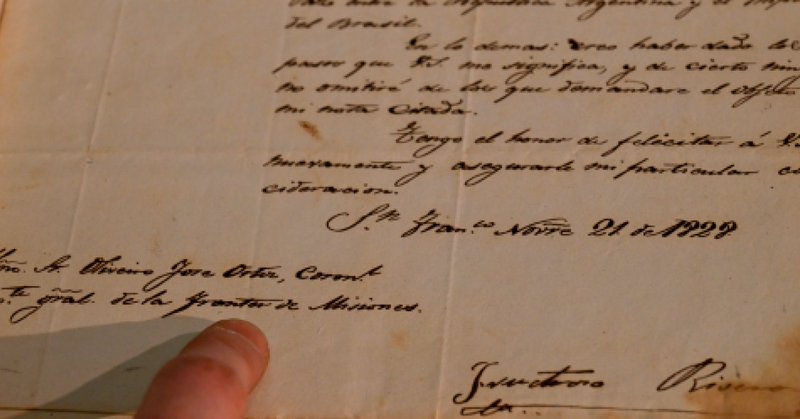 entre la Republica Argentina y el Imp
del Brasil.
En lo demas: creo haber dado lo
pasos que V.S. me significa, y de cierto nin
no omitiré de los que demandare el objeto
mi nota citada.
Tengo el honor de felicitar á V.
nuevamente y asegurarle mi particular c
cideracion.
Sn Franco Novre 21 de 1828
Sr. Oliveiro Jose Ortiz, Coronl
te gral. de la Frontera de Misiones.
Fructuoso Rivera